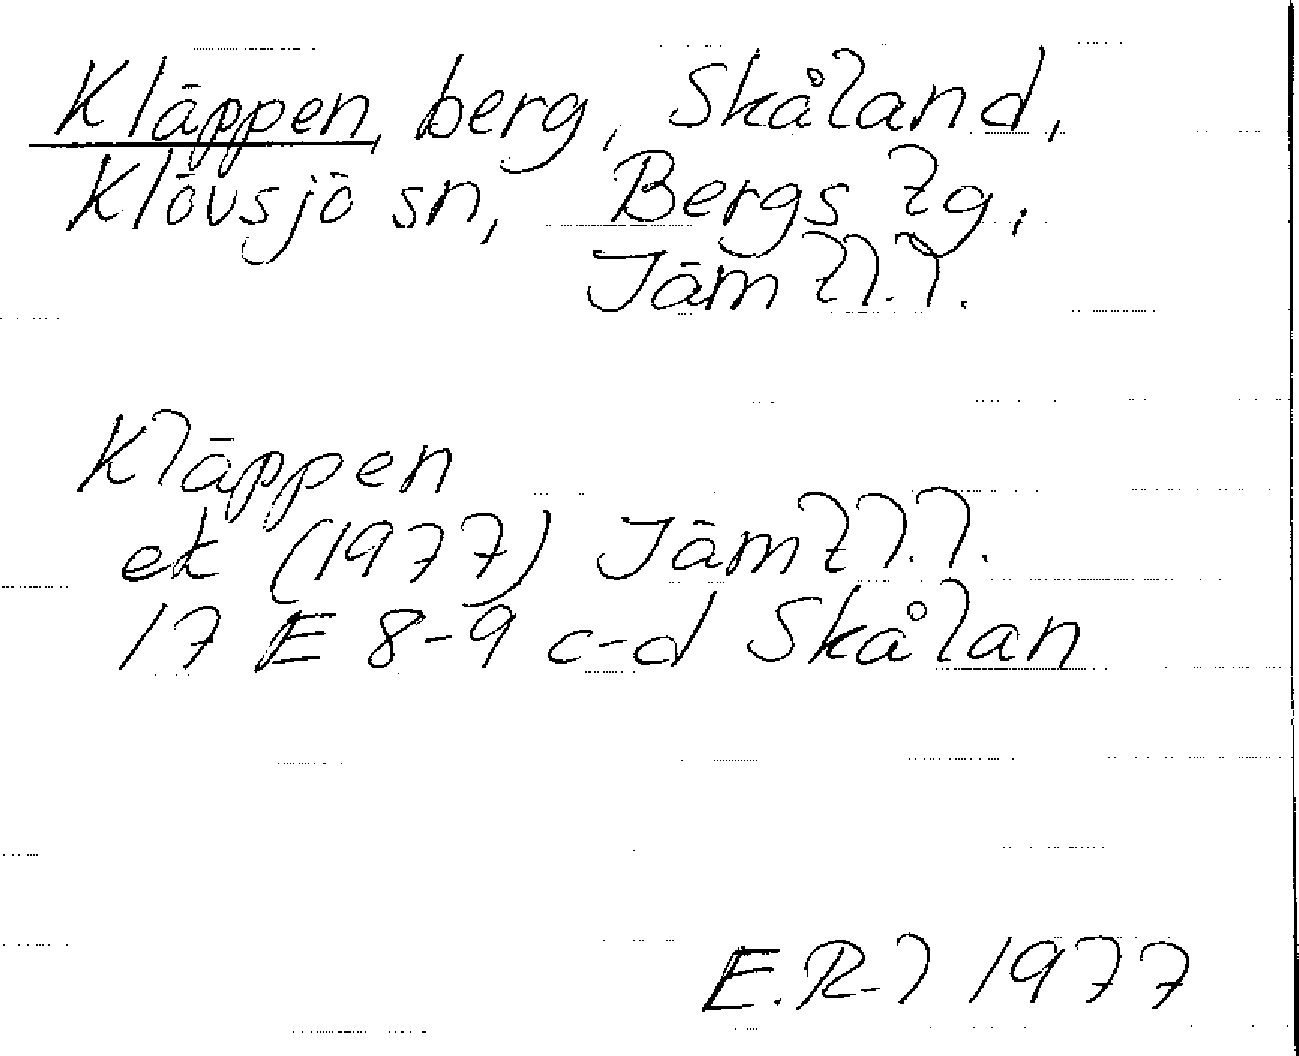 Kläppen, berg, Skåland,
Klövsjö sn, Bergs tg,
Jämtl.l.
Kläppen
ek (1977) Jämtl.l.
17 E 8-9 c-d Skålan
E.R-l 1977